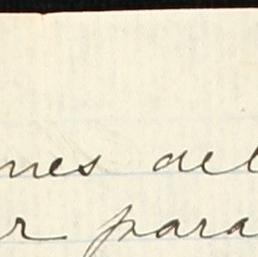 nes del
r para